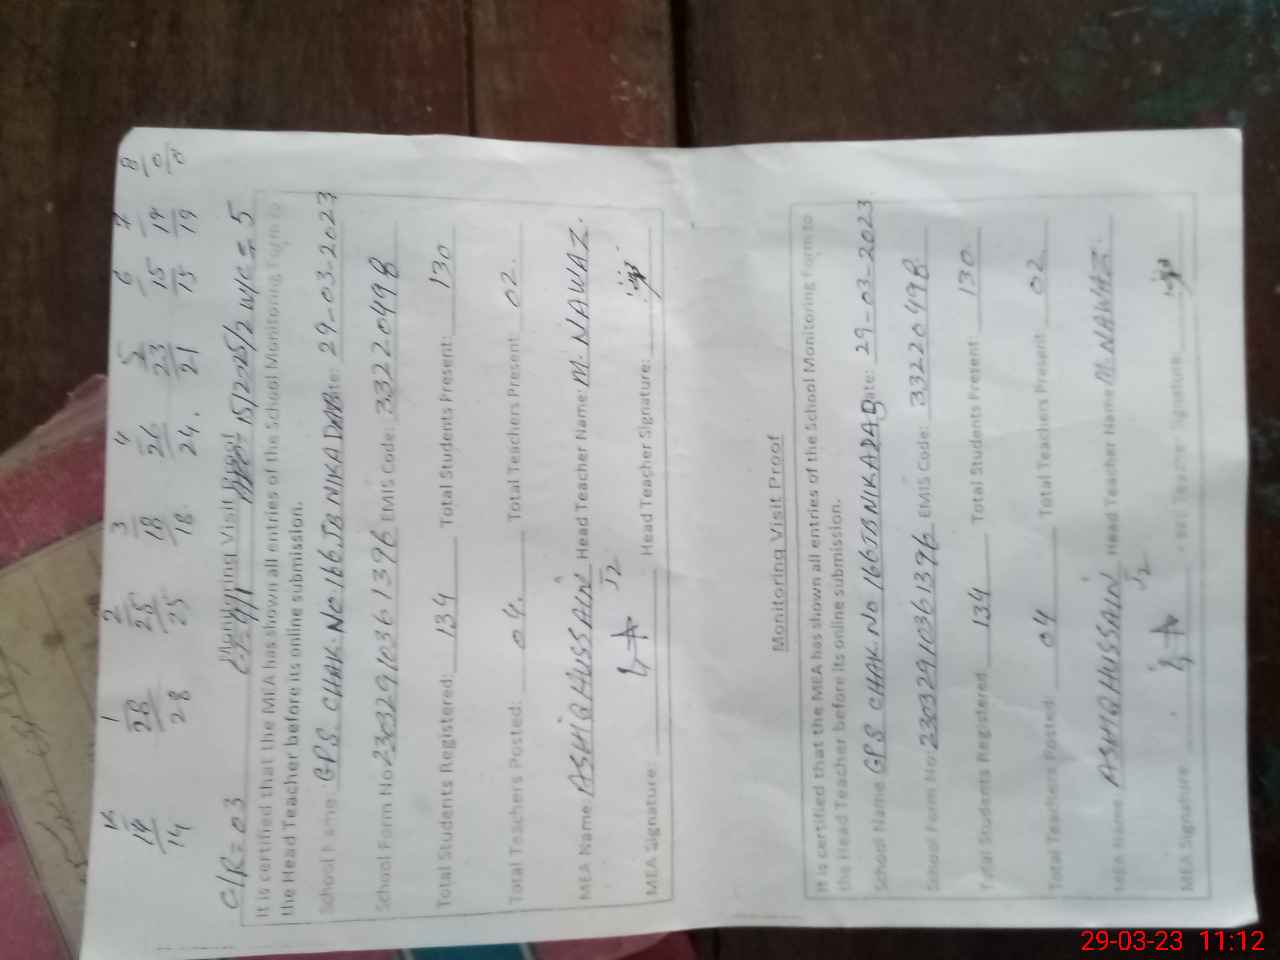 K 1 2 3 4 5 6 7 8
14 28 25 18 26 23 15 19 0
14 28 25 18 24. 21 15 19 0
C/R= 03
Monitoring Visit Proof
15/2-25/2 W/C = 5
It is certified that the MEA has shown all entries of the School Monitoring Form to
the Head Teacher before its online submission.
School Name: GPS CHAK. No 166JB NIKA DADA Date: 29-03-2023
School Form No 23032910361396 EMIS Code: 33220498
Total Students Registered: 134 Total Students Present: 130
Total Teachers Posted: 04. Total Teachers Present: 02.
MEA Name: ASHIQ HUSSAIN Head Teacher Name: M. NAWAZ.
MEA Signature: Head Teacher Signature:
Monitoring Visit Proof
It is certified that the MEA has shown all entries of the School Monitoring Form to
the Head Teacher before its online submission.
School Name GPS CHAK. No 166JB NIKA DADA Date: 29-03-2023
School Form No: 23032910361396 EMIS Code: 33220498
Total Students Registered 134 Total Students Present: 130.
Total Teachers Posted: 04 Total Teachers Present: 02
MEA Name: ASHIQ HUSSAIN Head Teacher Name M. NAWAZ.
MEA Signature Head Teacher Signature:
29-03-23 11:12